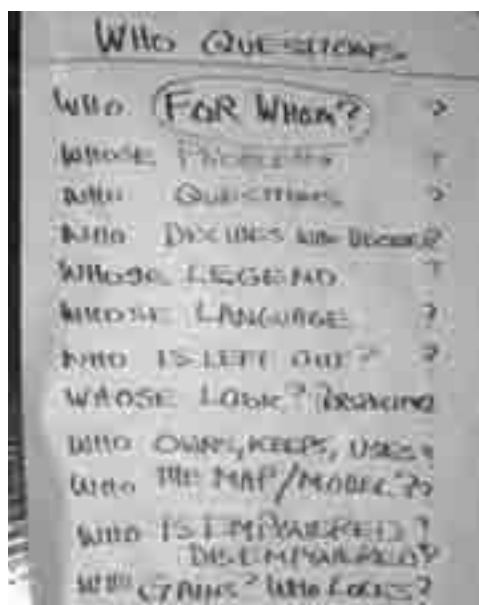 WHO QUESTIONS
WHO FOR WHOM? ?
WHOSE PROBLEMS ?
WHO QUESTIONS ?
WHO DECIDES WHO DECIDES?
WHOSE LEGEND ?
WHOSE LANGUAGE ?
WHO IS LEFT OUT? ?
WHOSE LOGIC?
WHO OWNS, KEEPS, USES
WHO THE MAP/MODEL?
WHO IS EMPOWERED?
DISEMPOWERED?
WHO GAINS? WHO LOSES?